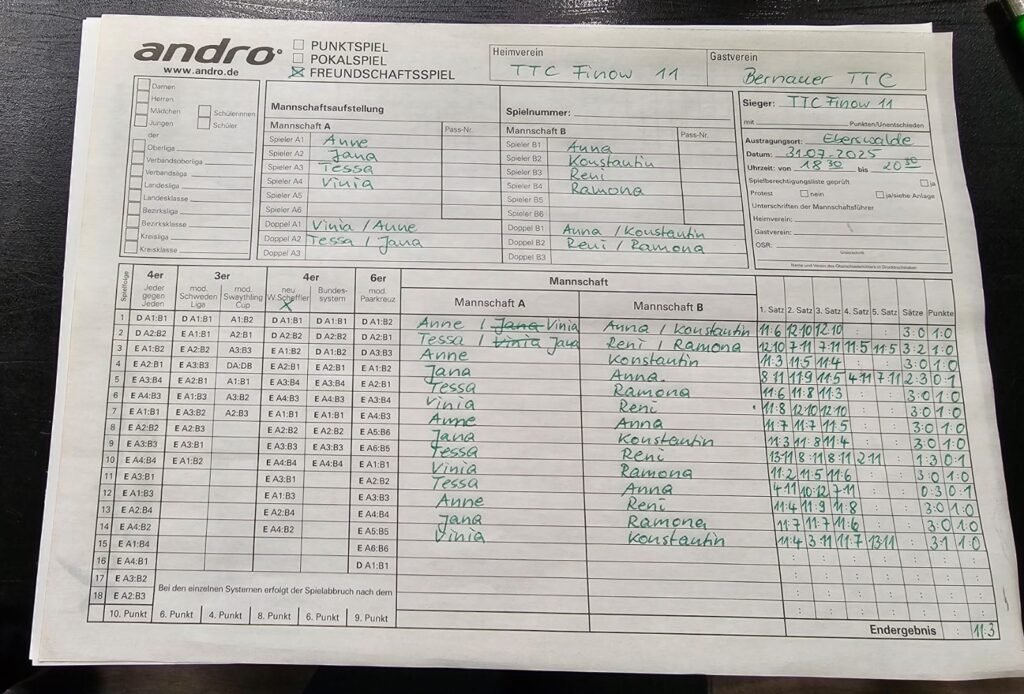 andro
www.andro.de
PUNKTSPIEL
POKALSPIEL
FREUNDSCHAFTSSPIEL
Heimverein
TTC Finow 11
Gastverein
Bernauer TTC
Damen
Herren
Mädchen
Jungen
Schülerinnen
Schüler
der
Oberliga
Verbandsoberliga
Verbandsliga
Landesliga
Landesklasse
Bezirksliga
Bezirksklasse
Kreisliga
Kreisklasse
Mannschaftsaufstellung
Mannschaft A Pass-Nr.
Spieler A1 Anne
Spieler A2 Jana
Spieler A3 Tessa
Spieler A4 Vinia
Spieler A5
Spieler A6
Doppel A1 Vinia / Anne
Doppel A2 Tessa / Jana
Doppel A3
Spielnummer:
Mannschaft B Pass-Nr.
Spieler B1 Anna
Spieler B2 Konstantin
Spieler B3 Reni
Spieler B4 Ramona
Spieler B5
Spieler B6
Doppel B1 Anna / Konstantin
Doppel B2 Reni / Ramona
Doppel B3
Sieger: TTC Finow 11
mit Punkten/Unentschieden
Austragungsort: Eberswalde
Datum: 31.07.2025
Uhrzeit: von 18 30 bis 20 30
Spielberechtigungsliste geprüft ja
Protest nein ja/siehe Anlage
Unterschriften der Mannschaftsführer
Heimverein:
Gastverein:
OSR:
Unterschrift
Name und Verein des Oberschiedsrichters in Druckbuchstaben
Spielfolge
4er 3er 4er 6er
Jeder gegen Jeden
mod. Schweden Liga
mod. Swaythling Cup
neu W.Scheffler X
Bundessystem
mod. Paarkreuz
Mannschaft
Mannschaft A Mannschaft B 1. Satz 2. Satz 3. Satz 4. Satz 5. Satz Sätze Punkte
1 D A1:B1 D A1:B1 A1:B2 D A1:B1 D A1:B1 D A1:B2 Anne / Jana Vinia Anna / Konstantin 11:6 12:10 12:10 : : 3:0 1:0
2 D A2:B2 E A1:B1 A2:B1 D A2:B2 D A2:B2 D A2:B1 Tessa / Vinia Jana Reni / Ramona 12:10 7:11 7:11 11:5 11:5 3:2 1:0
3 E A1:B2 E A2:B2 A3:B3 E A1:B2 E A1:B2 D A3:B3 Anne Konstantin 11:3 11:5 11:4 : : 3:0 1:0
4 E A2:B1 E A3:B3 DA:DB E A2:B1 E A2:B1 E A1:B2 Jana Anna 8:11 11:9 11:5 4:11 7:11 2:3 0:1
5 E A3:B4 E A2:B1 A1:B1 E A3:B4 E A3:B4 E A2:B1 Tessa Ramona 11:6 11:8 11:3 : : 3:0 1:0
6 E A4:B3 E A1:B3 A3:B2 E A4:B3 E A4:B3 E A3:B4 Vinia Reni 11:8 12:10 12:10 : : 3:0 1:0
7 E A1:B1 E A3:B2 A2:B3 E A1:B1 E A1:B1 E A4:B3 Anne Anna 11:7 11:7 11:5 : : 3:0 1:0
8 E A2:B2 E A2:B3 E A2:B2 E A2:B2 E A5:B6 Jana Konstantin 11:3 11:8 11:4 : : 3:0 1:0
9 E A3:B3 E A3:B1 E A3:B3 E A3:B3 E A6:B5 Tessa Reni 13:11 8:11 8:11 2:11 : 1:3 0:1
10 E A4:B4 E A1:B2 E A4:B4 E A4:B4 E A1:B1 Vinia Ramona 11:2 11:5 11:6 : : 3:0 1:0
11 E A3:B1 E A3:B1 E A2:B2 Tessa Anna 4:11 10:12 7:11 : : 0:3 0:1
12 E A1:B3 E A1:B3 E A3:B3 Anne Reni 11:4 11:9 11:8 : : 3:0 1:0
13 E A2:B4 E A2:B4 E A4:B4 Jana Ramona 11:7 11:7 11:6 : : 3:0 1:0
14 E A4:B2 E A4:B2 E A5:B5 Vinia Konstantin 11:4 3:11 11:7 13:11 : 3:1 1:0
15 E A1:B4 E A6:B6
16 E A4:B1 D A1:B1
17 E A3:B2
18 E A2:B3
Bei den einzelnen Systemen erfolgt der Spielabbruch nach dem
10. Punkt 6. Punkt 4. Punkt 8. Punkt 6. Punkt 9. Punkt
Endergebnis : 11:3